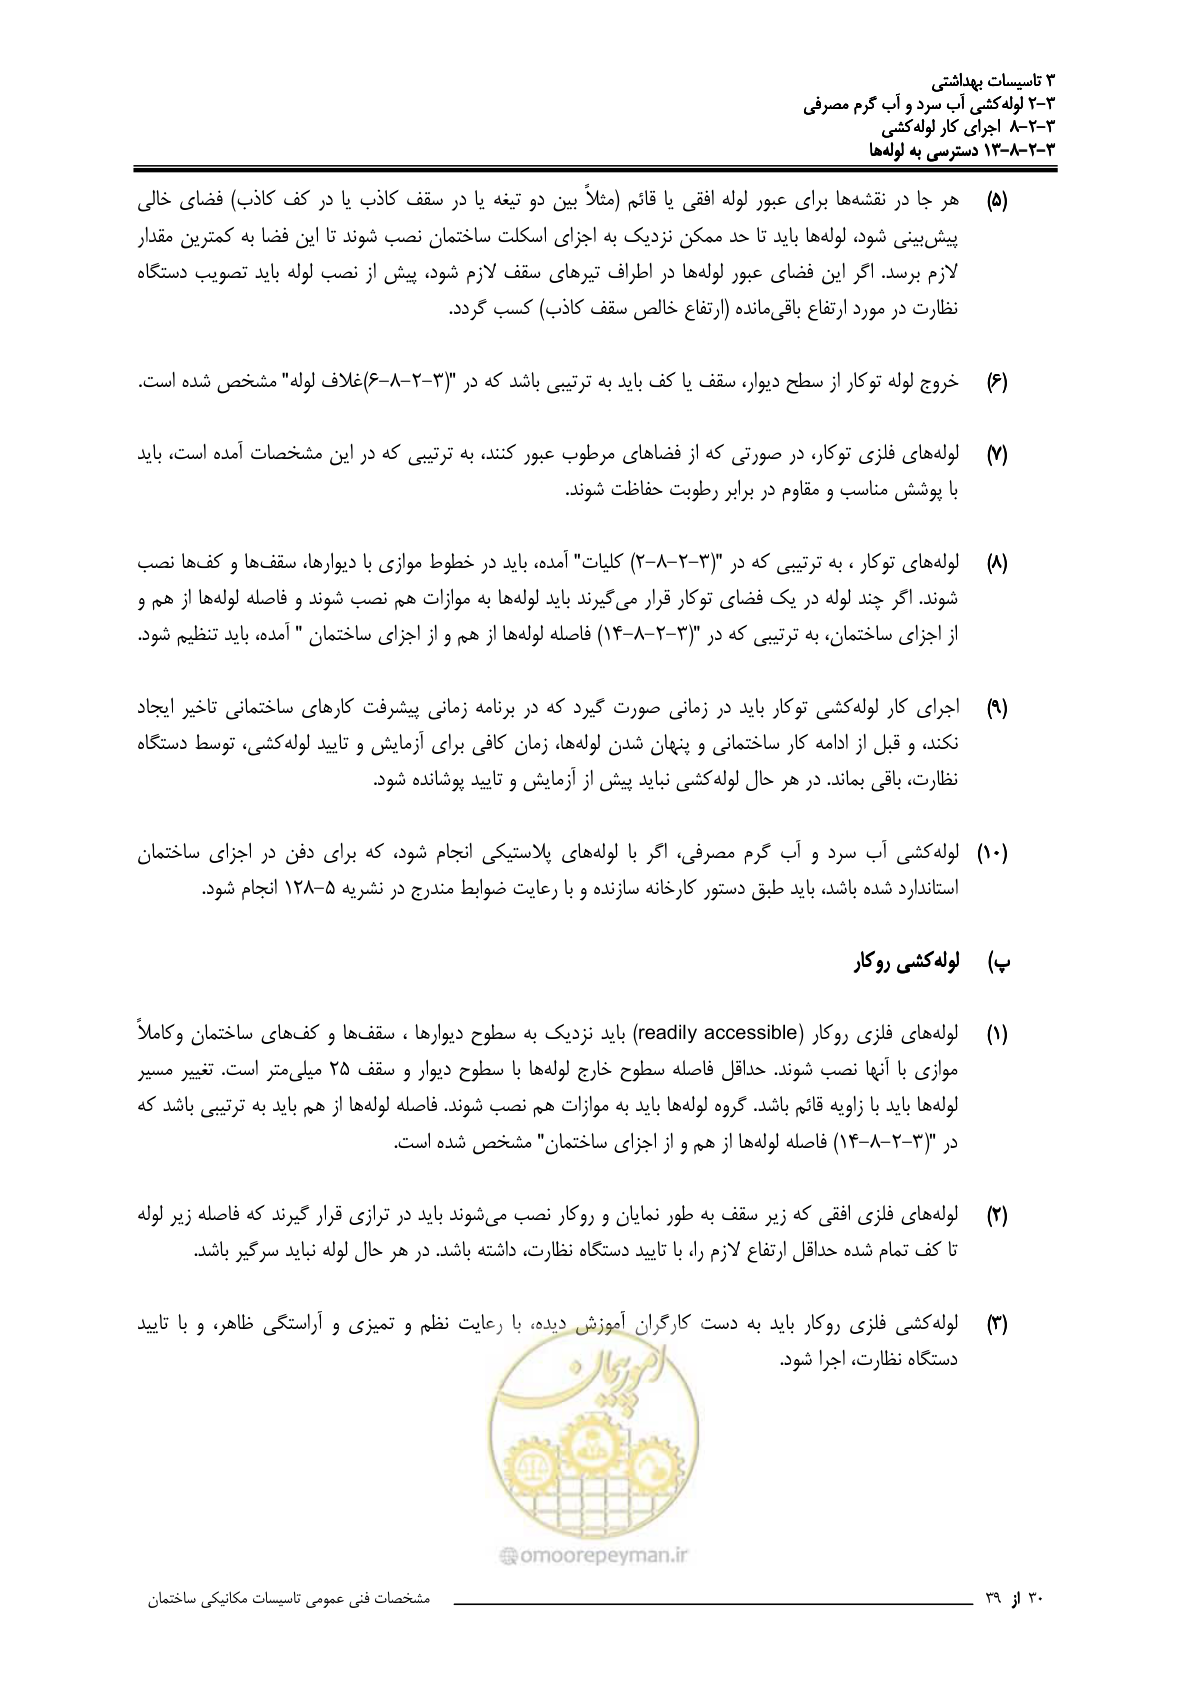 ۳ تاسیسات بهداشتی
۳-۲ لوله‌کشی آب سرد و آب گرم مصرفی
۳-۲-۸ اجرای کار لوله‌کشی
۳-۲-۸-۱۳ دسترسی به لوله‌ها
(۵) هر جا در نقشه‌ها برای عبور لوله افقی یا قائم (مثلاً بین دو تیغه یا در سقف کاذب یا در کف کاذب) فضای خالی
پیش‌بینی شود، لوله‌ها باید تا حد ممکن نزدیک به اجزای اسکلت ساختمان نصب شوند تا این فضا به کمترین مقدار
لازم برسد. اگر این فضای عبور لوله‌ها در اطراف تیرهای سقف لازم شود، پیش از نصب لوله باید تصویب دستگاه
نظارت در مورد ارتفاع باقی‌مانده (ارتفاع خالص سقف کاذب) کسب گردد.
(۶) خروج لوله توکار از سطح دیوار، سقف یا کف باید به ترتیبی باشد که در "(۳-۲-۸-۶)غلاف لوله" مشخص شده است.
(۷) لوله‌های فلزی توکار، در صورتی که از فضاهای مرطوب عبور کنند، به ترتیبی که در این مشخصات آمده است، باید
با پوشش مناسب و مقاوم در برابر رطوبت حفاظت شوند.
(۸) لوله‌های توکار ، به ترتیبی که در "(۳-۲-۸-۲) کلیات" آمده، باید در خطوط موازی با دیوارها، سقف‌ها و کف‌ها نصب
شوند. اگر چند لوله در یک فضای توکار قرار می‌گیرند باید لوله‌ها به موازات هم نصب شوند و فاصله لوله‌ها از هم و
از اجزای ساختمان، به ترتیبی که در "(۳-۲-۸-۱۴) فاصله لوله‌ها از هم و از اجزای ساختمان " آمده، باید تنظیم شود.
(۹) اجرای کار لوله‌کشی توکار باید در زمانی صورت گیرد که در برنامه زمانی پیشرفت کارهای ساختمانی تاخیر ایجاد
نکند، و قبل از ادامه کار ساختمانی و پنهان شدن لوله‌ها، زمان کافی برای آزمایش و تایید لوله‌کشی، توسط دستگاه
نظارت، باقی بماند. در هر حال لوله‌کشی نباید پیش از آزمایش و تایید پوشانده شود.
(۱۰) لوله‌کشی آب سرد و آب گرم مصرفی، اگر با لوله‌های پلاستیکی انجام شود، که برای دفن در اجزای ساختمان
استاندارد شده باشد، باید طبق دستور کارخانه سازنده و با رعایت ضوابط مندرج در نشریه ۵-۱۲۸ انجام شود.
پ) لوله‌کشی روکار
(۱) لوله‌های فلزی روکار (readily accessible) باید نزدیک به سطوح دیوارها ، سقف‌ها و کف‌های ساختمان وکاملاً
موازی با آنها نصب شوند. حداقل فاصله سطوح خارج لوله‌ها با سطوح دیوار و سقف ۲۵ میلی‌متر است. تغییر مسیر
لوله‌ها باید با زاویه قائم باشد. گروه لوله‌ها باید به موازات هم نصب شوند. فاصله لوله‌ها از هم باید به ترتیبی باشد که
در "(۳-۲-۸-۱۴) فاصله لوله‌ها از هم و از اجزای ساختمان" مشخص شده است.
(۲) لوله‌های فلزی افقی که زیر سقف به طور نمایان و روکار نصب می‌شوند باید در ترازی قرار گیرند که فاصله زیر لوله
تا کف تمام شده حداقل ارتفاع لازم را، با تایید دستگاه نظارت، داشته باشد. در هر حال لوله نباید سرگیر باشد.
(۳) لوله‌کشی فلزی روکار باید به دست کارگران آموزش دیده، با رعایت نظم و تمیزی و آراستگی ظاهر، و با تایید
دستگاه نظارت، اجرا شود.
امور پیمان
omoorepeyman.ir
۳۰ از ۳۹ مشخصات فنی عمومی تاسیسات مکانیکی ساختمان